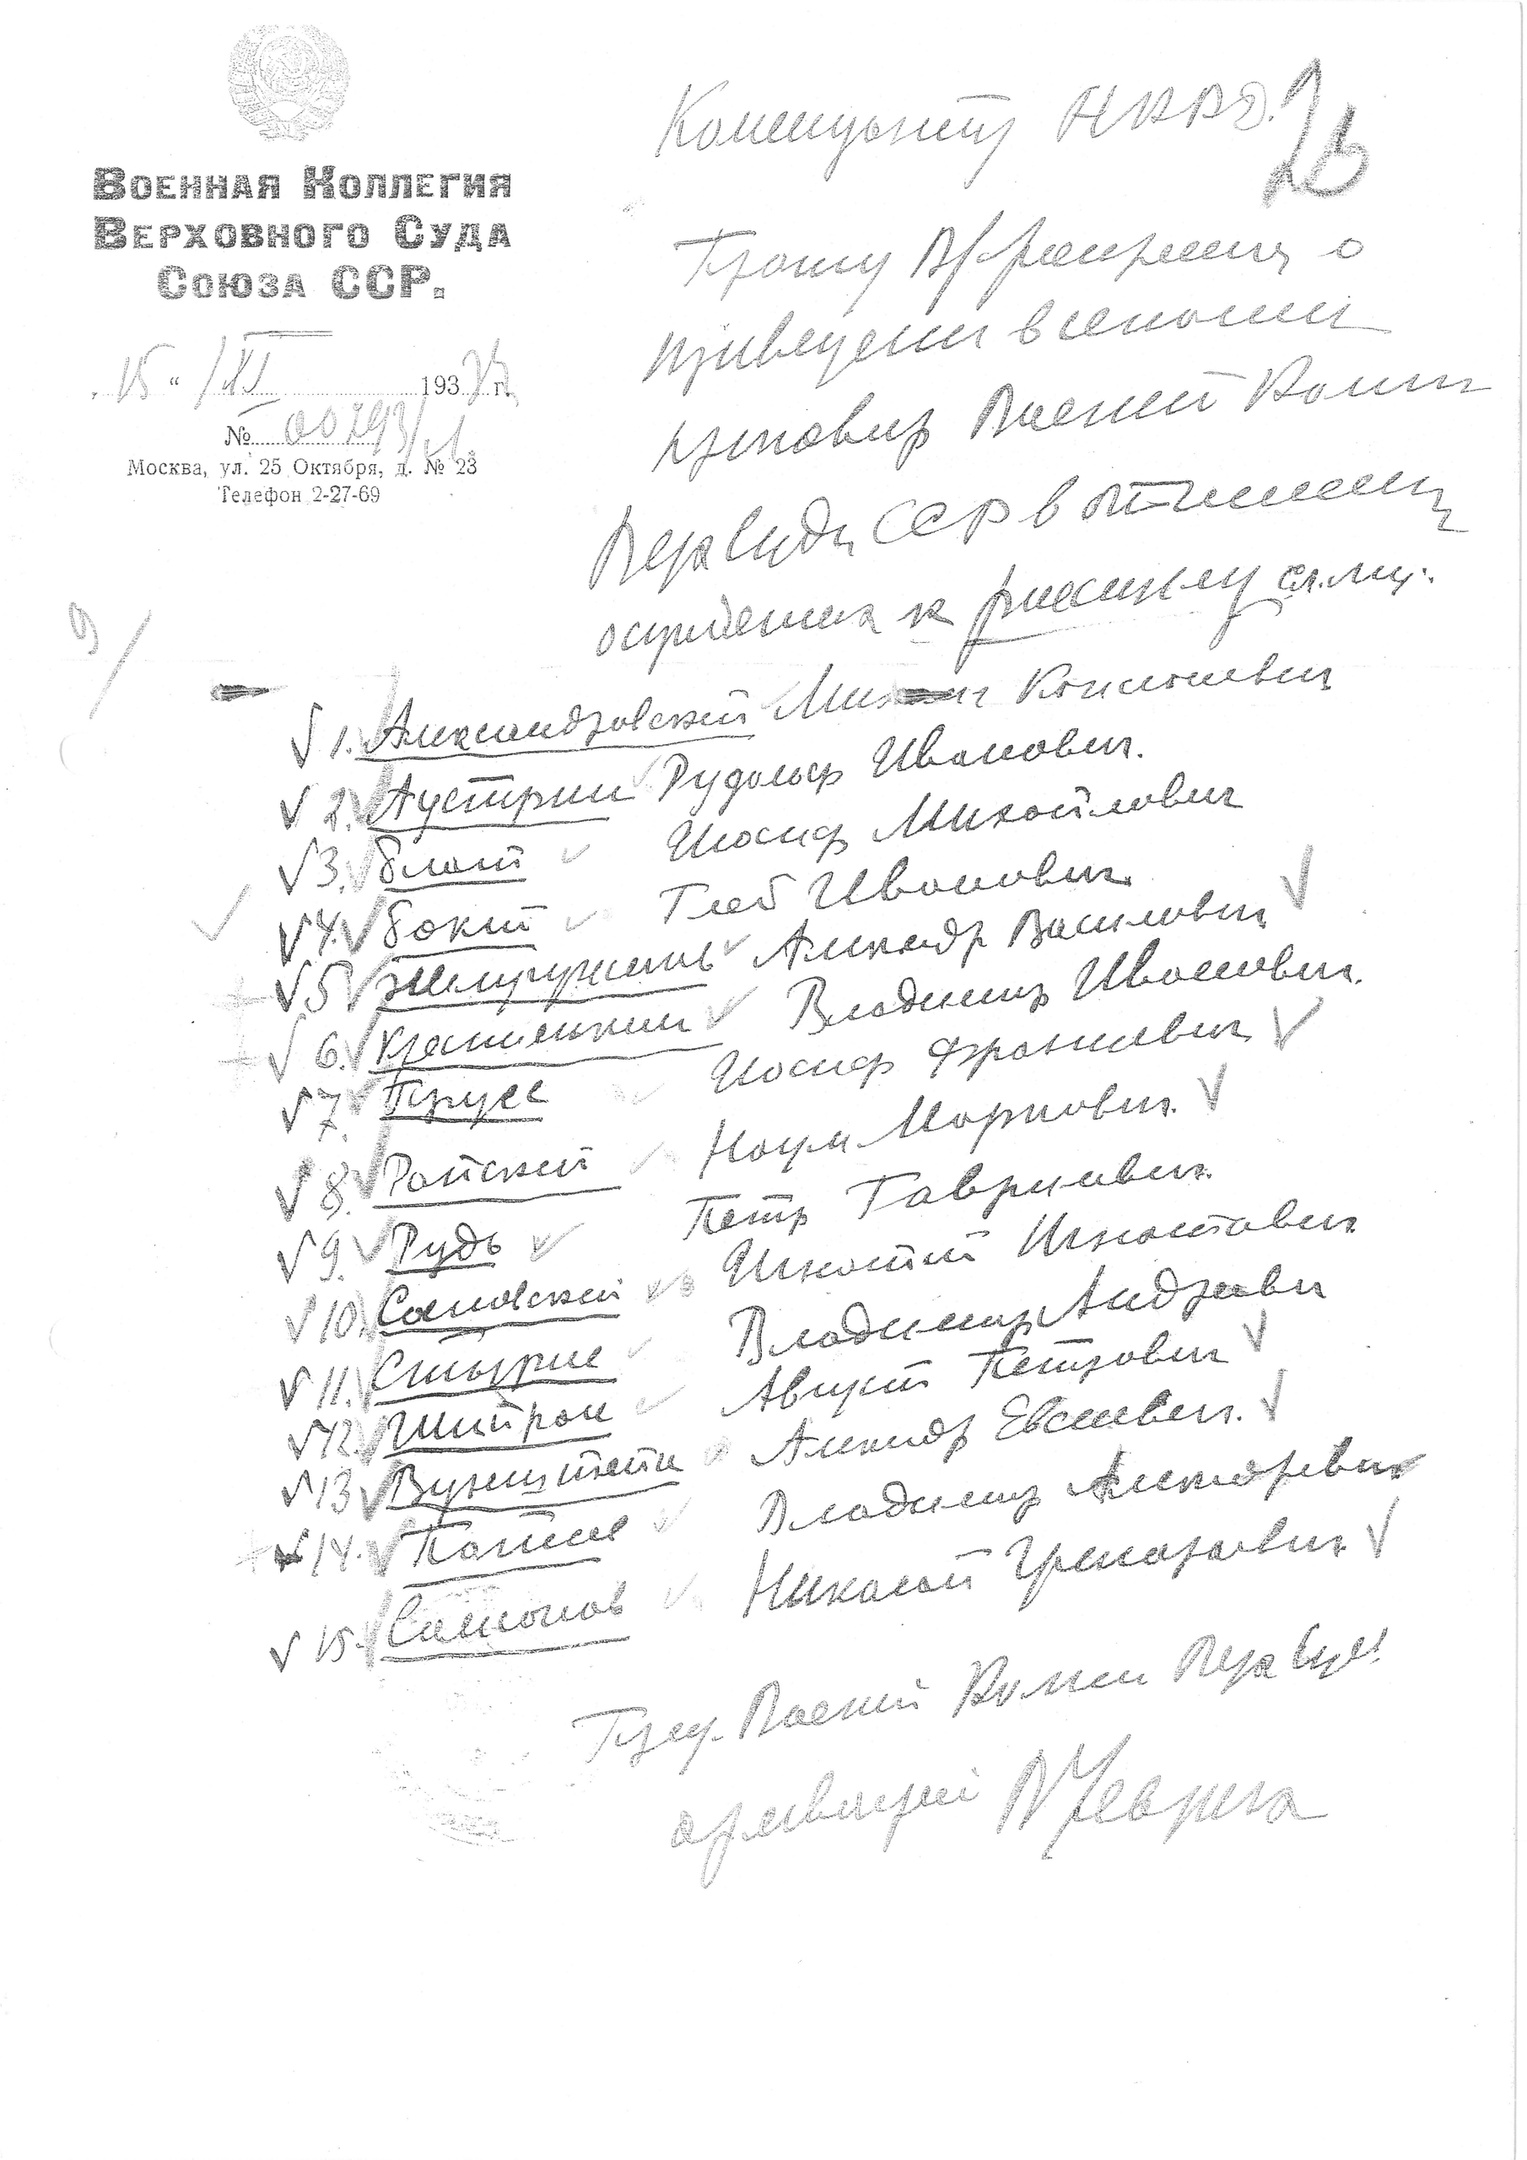 Военная Коллегия
Верховного Суда
Союза ССР.
"15" XI 1937 г.
№ 00293/
Москва, ул. 25 Октября, д. № 23
Телефон 2-27-69
Коменданту НКВД.
26
Прошу
о
приведении в исполнен
приговор Военной Коллег
ВерхСуда СССР в отношении
осужденных к расстрелу сл. лиц:
1. Александровский Михаил Константинович
2. Аустрин Рудольф Иванович.
3. Блат Иосиф Михайлович
4. Бокий Глеб Иванович.
5. Александр Василович
6. Владимир Иванович.
7. Прусс Иосиф Францевич
8. Райский Наум Маркович.
9. Рудь Петр Гаврилович.
10. Сосновский Игнатий Игнатович
11. Стырне Владимир Андреевич
12. Шпрон Август Петрович
13. Александр Евсеевич.
14. Владимир Александревич
15. Самонов Николай Григорович
Пред. Военной Коллегии Верх Суда
армвоенюрист В Ульрих